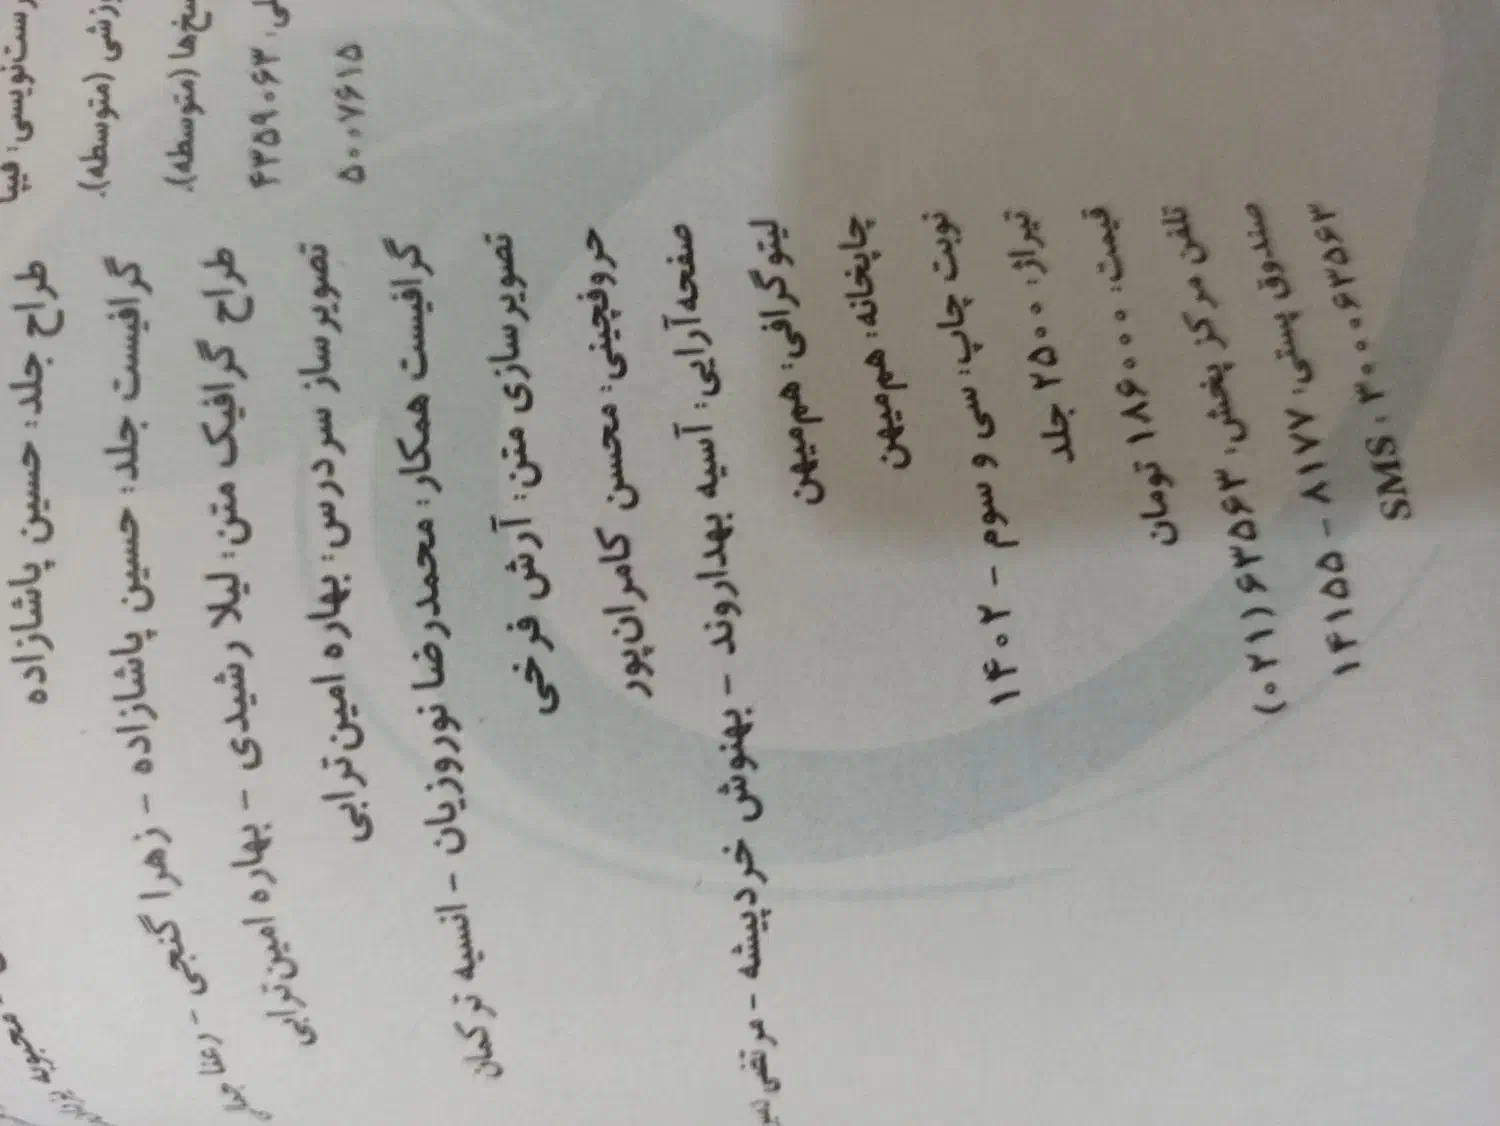 رست‌نویسی: فیپا
(متوسطه).
(متوسطه).
۴۳۵۹۰۶۳
۵۰۰۷۶۱۵
طراح جلد: حسین پاشازاده
گرافیست جلد: حسین پاشازاده - زهرا گنجی - رعنا
طراح گرافیک متن: لیلا رشیدی - بهاره امین‌ترابی
تصویرساز سردرس: بهاره امین‌ترابی
گرافیست همکار: محمدرضا نوروزیان - انسیه ترکمان
تصویرسازی متن: آرش فرخی
حروفچینی: محسن کامران‌پور
صفحه‌آرایی: آسیه بهداروند - بهنوش خردپیشه - مرتضی
لیتوگرافی: هم‌میهن
چاپخانه: هم‌میهن
نوبت چاپ: سی و سوم - ۱۴۰۲
تیراژ: ۲۵۰۰ جلد
قیمت: ۱۸۶۰۰۰ تومان
تلفن مرکز پخش: ۶۳۵۶۳ (۰۲۱)
صندوق پستی: ۸۱۷۷ - ۱۴۱۵۵
SMS : ۳۰۰۰۶۳۵۶۳